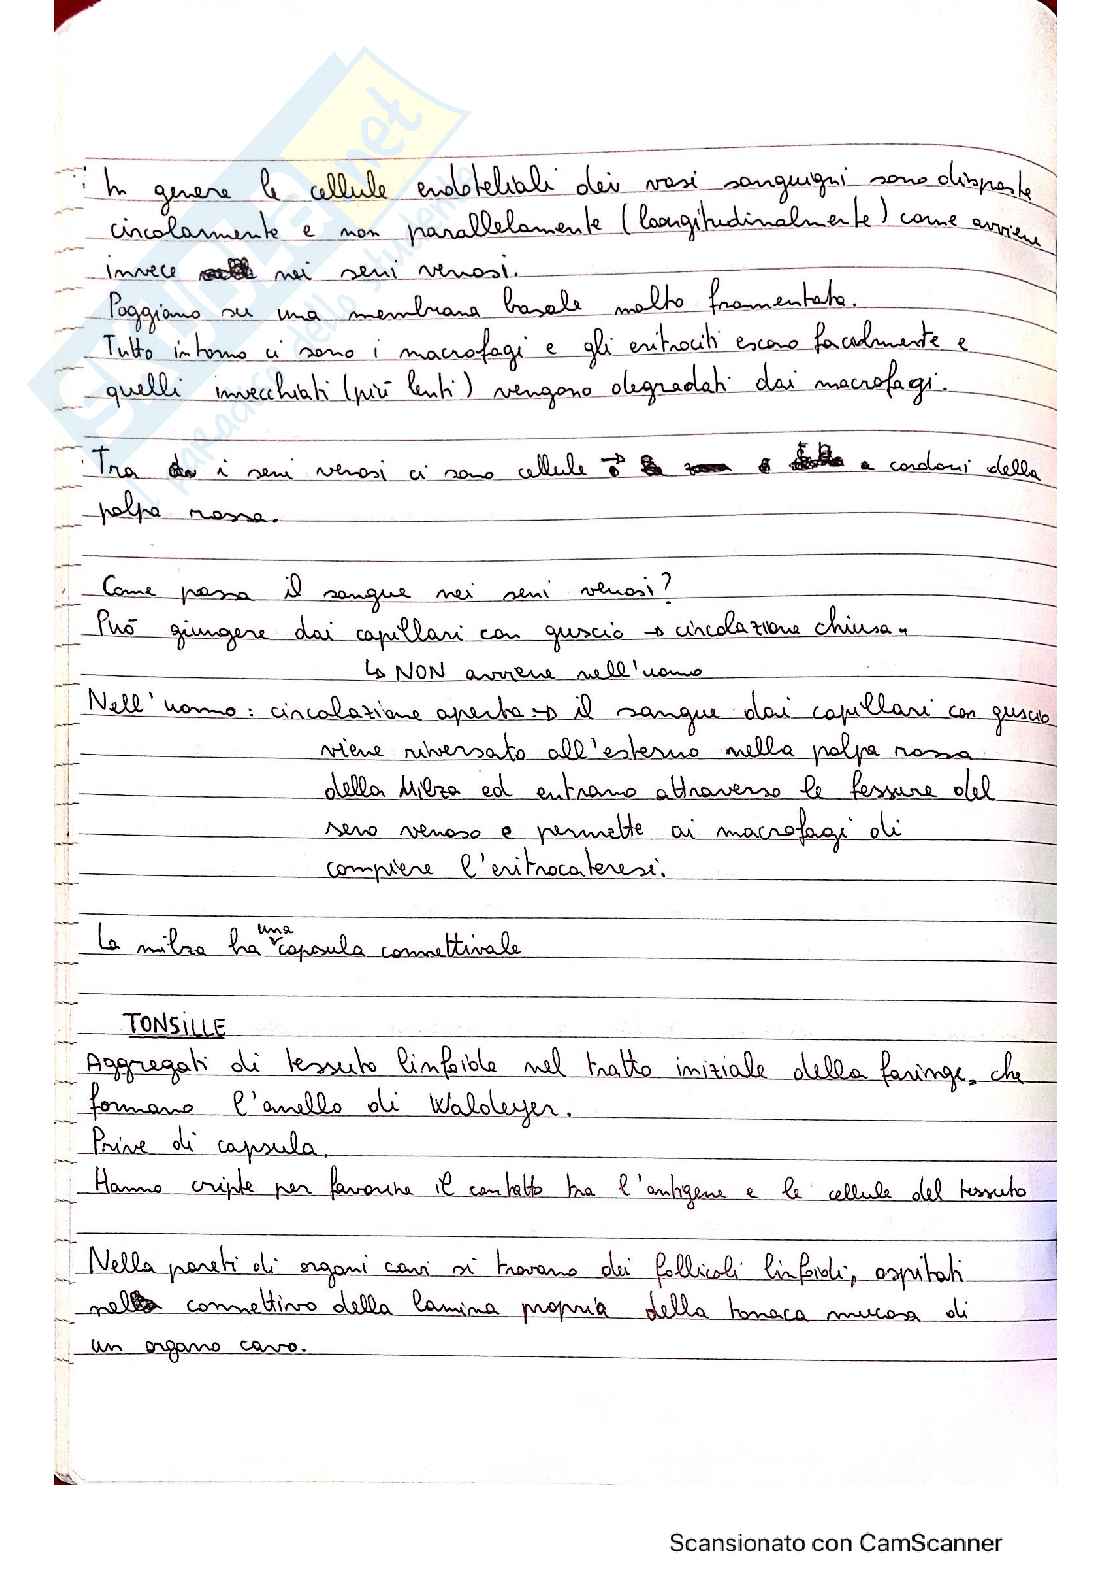 In genere le cellule endoteliali dei vasi sanguigni sono disposte
circolarmente e non parallelamente (longitudinalmente) come avviene
invece nei seni venosi.
Poggiano su una membrana basale molto framentata.
Tutto intorno ci sono i macrofagi e gli eritrociti escono facilmente e
quelli invecchiati (più lenti) vengono degradati dai macrofagi.
Tra i seni venosi ci sono cellule → e cordoni della
polpa rossa.
Come passa il sangue nei seni venosi?
Può giungere dai capillari con guscio → circolazione chiusa.
↳ NON avviene nell'uomo
Nell'uomo: circolazione aperta → il sangue dai capillari con guscio
viene riversato all'esterno nella polpa rossa
della Milza ed entrano attraverso le fessure del
seno venoso e permette ai macrofagi di
compiere l'eritrocateresi.
La milza ha una capsula connettivale
TONSILLE
Aggregati di tessuto linfoide nel tratto iniziale della faringe, che
formano l'anello di Waldeyer.
Prive di capsula.
Hanno cripte per favorire il contatto tra l'antigene e le cellule del tessuto
Nella pareti di organi cavi si trovano dei follicoli linfoidi, ospitati
nel connettivo della lamina propria della tonaca mucosa di
un organo cavo.
Scansionato con CamScanner